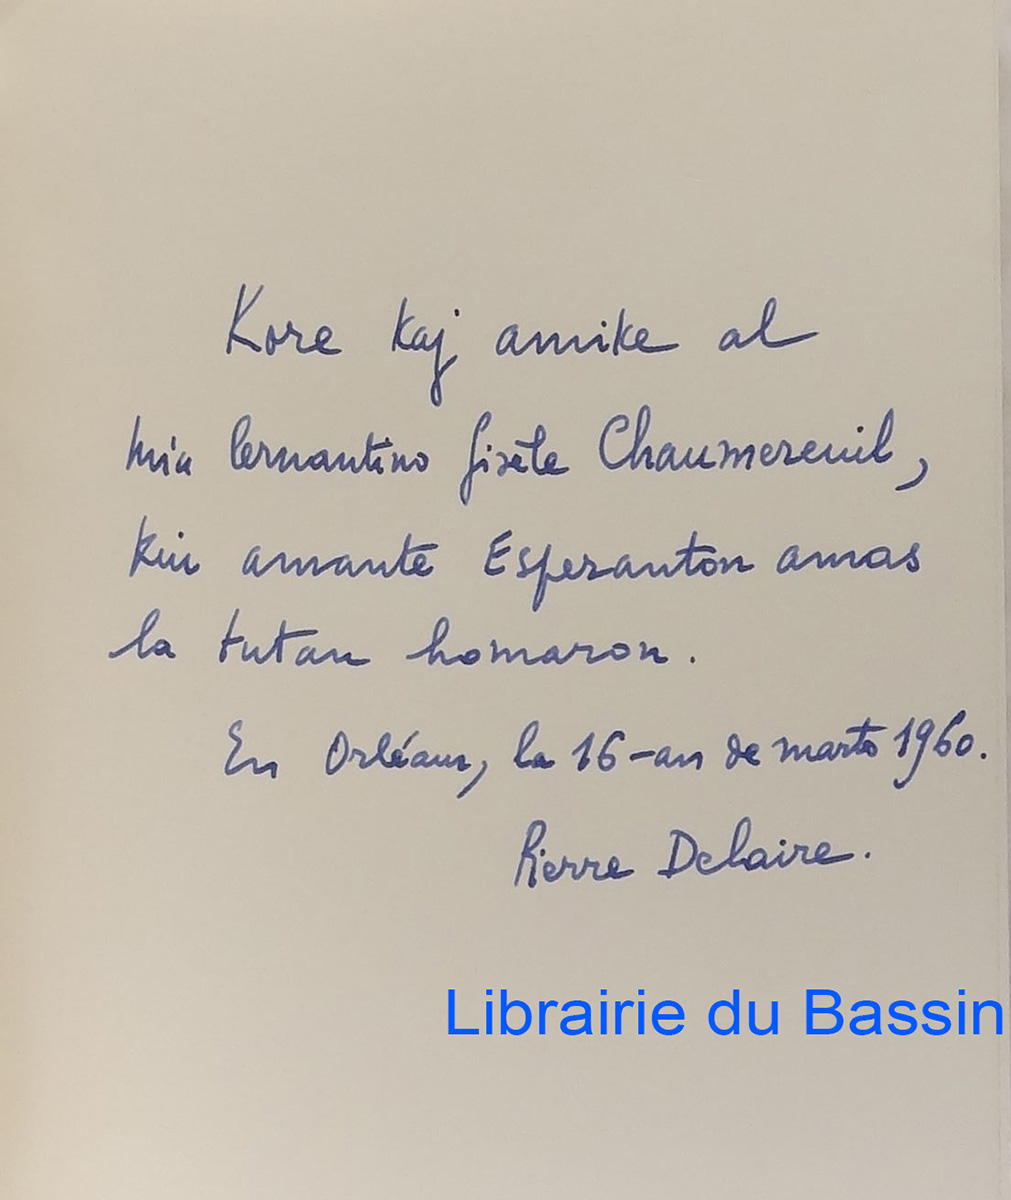 Kore kaj amike al
mia lernantino Gisèle Chaumereuil,
kiu amante Esperanton amas
la tutan homaron.
En Orléans, la 16-an de marto 1960.
Pierre Delaire.
Librairie du Bassin